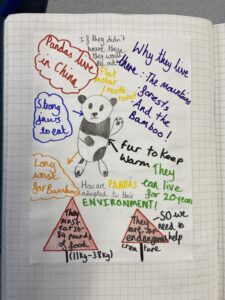 Pandas live
in China
If they didn't
have these
they would
Flat
molar
teeth
Why they live
there: The mountins
forests
And the
Bamboo!
Strong
jaws
to eat
Fur to Keep
Warm
They
can live
for 20 years
Long
wrist
for Bamboo
How are PANDAS
adapted to their
ENVIRONMENT!
They
must
eat 26-
84 pounds
of food
(11kg-38kg)
They
are an
endangered
creature
-SO we
need to
help